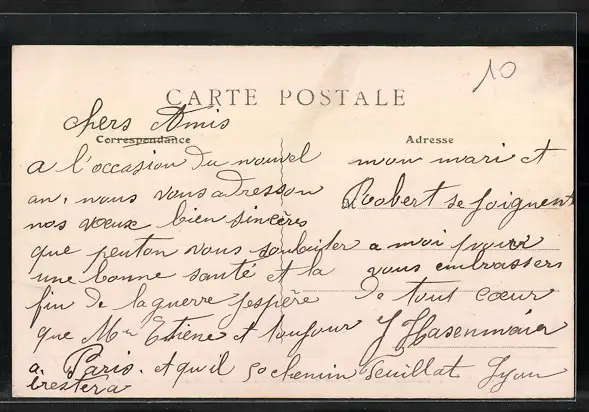 10
CARTE POSTALE
chers Amis
Correspondance
a l'occasion du nouvel
an, nous vous adresson
nos vœux bien sincères
que peuton vous souhaiter
une bonne santé et la
fin de la guerre j'espère
que Mr Etiene et toujour
a Paris. et qu'il
y restera
Adresse
mon mari et
Robert se joignent
a moi pour
vous embrassers
de tout cœur
J Hasenmaier
50 chemin Feuillat Lyon